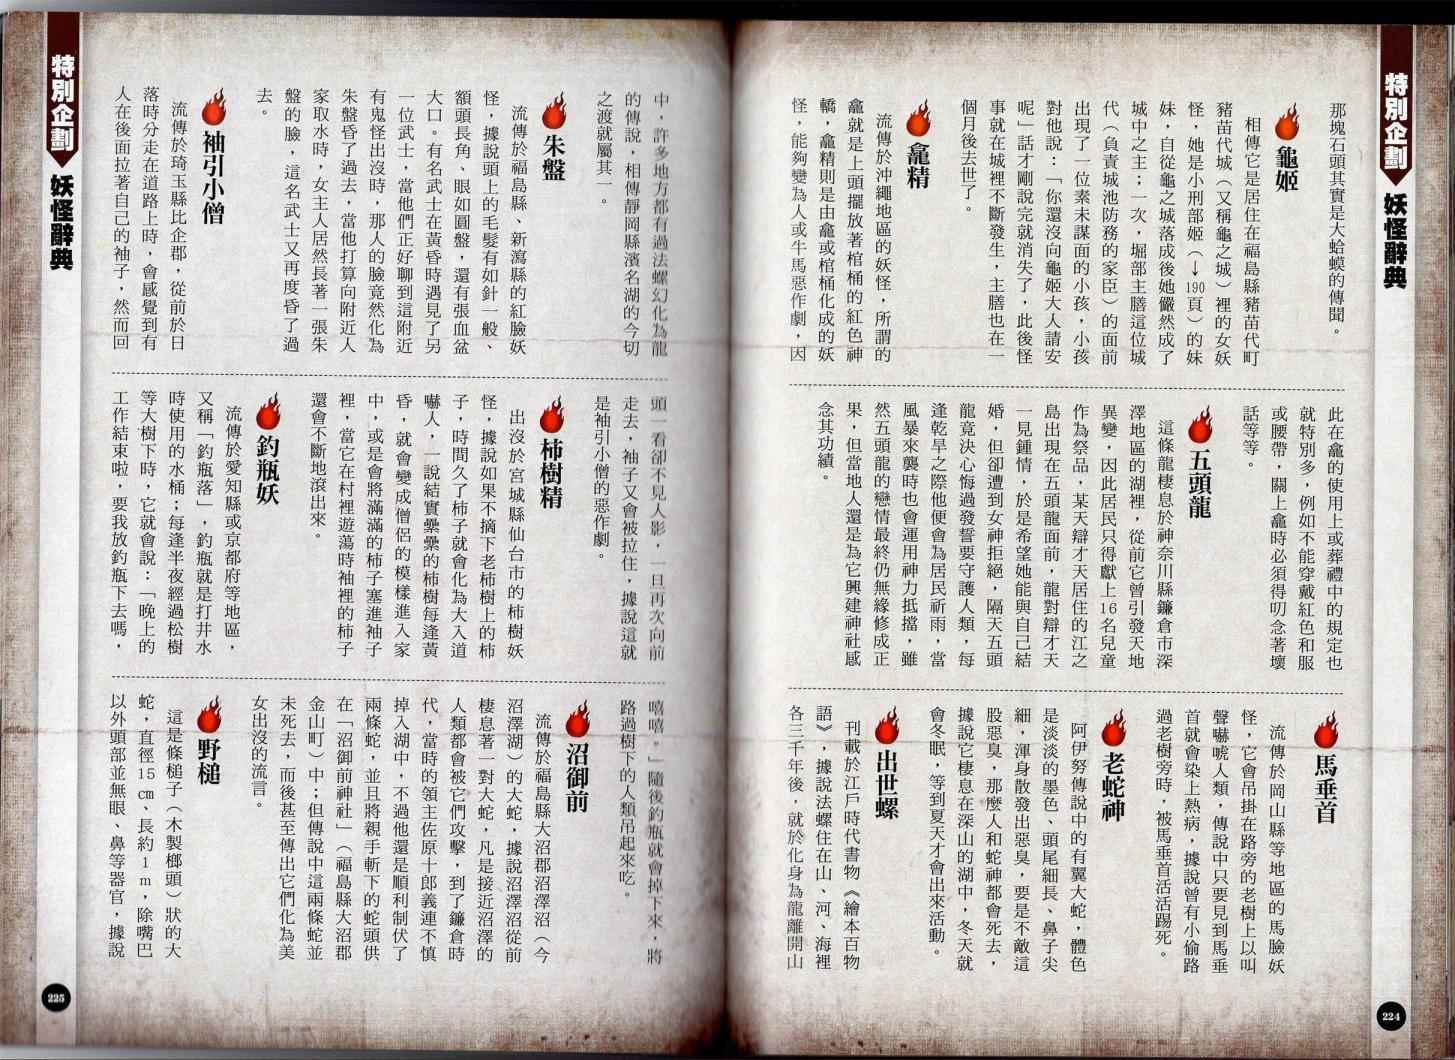 特別企劃
妖怪辭典
那塊石頭其實是大蛤蟆的傳聞。
龜姬
相傳它是居住在福島縣豬苗代町
豬苗代城（又稱龜之城）裡的女妖
怪，她是小刑部姬（→190頁）的妹
妹，自從龜之城落成後她儼然成了
城中之主；一次，堀部主膳這位城
代（負責城池防務的家臣）的面前
出現了一位素未謀面的小孩，小孩
對他說：「你還沒向龜姬大人請安
呢」話才剛說完就消失了，此後怪
事就在城裡不斷發生，主膳也在一
個月後去世了。
龕精
流傳於沖繩地區的妖怪，所謂的
龕就是上頭擺放著棺桶的紅色神
轎，龕精則是由龕或棺桶化成的妖
怪，能夠變為人或牛馬惡作劇，因
此在龕的使用上或葬禮中的規定也
就特別多，例如不能穿戴紅色和服
或腰帶，關上龕時必須得叨念著壞
話等等。
五頭龍
這條龍棲息於神奈川縣鐮倉市深
澤地區的湖裡，從前它曾引發天地
異變，因此居民只得獻上16名兒童
作為祭品，某天辯才天居住的江之
島出現在五頭龍面前，龍對辯才天
一見鍾情，於是希望她能與自己結
婚，但卻遭到女神拒絕，隔天五頭
龍竟決心悔過發誓要守護人類，每
逢乾旱之際他便會為居民祈雨，當
風暴來襲時也會運用神力抵擋，雖
然五頭龍的戀情最終仍無緣修成正
果，但當地人還是為它興建神社感
念其功績。
馬垂首
流傳於岡山縣等地區的馬臉妖
怪，它會吊掛在路旁的老樹上以叫
聲嚇唬人類，傳說中只要見到馬垂
首就會染上熱病，據說曾有小偷路
過老樹旁時，被馬垂首活活踢死。
老蛇神
阿伊努傳說中的有翼大蛇，體色
是淡淡的墨色、頭尾細長、鼻子尖
細，渾身散發出惡臭，要是不敵這
股惡臭，那麼人和蛇神都會死去，
據說它棲息在深山的湖中，冬天就
會冬眠，等到夏天才會出來活動。
出世螺
刊載於江戶時代書物《繪本百物
語》，據說法螺住在山、河、海裡
各三千年後，就於化身為龍離開山
224
特別企劃
妖怪辭典
中，許多地方都有過法螺幻化為龍
的傳說，相傳靜岡縣濱名湖的今切
之渡就屬其一。
朱盤
流傳於福島縣、新瀉縣的紅臉妖
怪，據說頭上的毛髮有如針一般、
額頭長角、眼如圓盤，還有張血盆
大口。有名武士在黃昏時遇見了另
一位武士，當他們正好聊到這附近
有鬼怪出沒時，那人的臉竟然化為
朱盤昏了過去，當他打算向附近人
家取水時，女主人居然長著一張朱
盤的臉，這名武士又再度昏了過
去。
袖引小僧
流傳於琦玉縣比企郡，從前於日
落時分走在道路上時，會感覺到有
人在後面拉著自己的袖子，然而回
頭一看卻不見人影，一旦再次向前
走去，袖子又會被拉住，據說這就
是袖引小僧的惡作劇。
柿樹精
出沒於宮城縣仙台市的柿樹妖
怪，據說如果不摘下老柿樹上的柿
子，時間久了柿子就會化為大入道
嚇人，一說結實纍纍的柿樹每逢黃
昏，就會變成僧侶的模樣進入家
中，或是會將滿滿的柿子塞進袖子
裡，當它在村裡遊蕩時袖裡的柿子
還會不斷地滾出來。
釣瓶妖
流傳於愛知縣或京都府等地區，
又稱「釣瓶落」，釣瓶就是打井水
時使用的水桶；每逢半夜經過松樹
等大樹下時，它就會說：「晚上的
工作結束啦，要我放釣瓶下去嗎，
嘻嘻。」隨後釣瓶就會掉下來，將
路過樹下的人類吊起來吃。
沼御前
流傳於福島縣大沼郡沼澤沼（今
沼澤湖）的大蛇，據說沼澤沼從前
棲息著一對大蛇，凡是接近沼澤的
人類都會被它們攻擊，到了鐮倉時
代，當時的領主佐原十郎義連不慎
掉入湖中，不過他還是順利制伏了
兩條蛇，並且將親手斬下的蛇頭供
在「沼御前神社」（福島縣大沼郡
金山町）中；但傳說中這兩條蛇並
未死去，而後甚至傳出它們化為美
女出沒的流言。
野槌
這是條槌子（木製榔頭）狀的大
蛇，直徑15cm、長約1m，除嘴巴
以外頭部並無眼、鼻等器官，據說
225